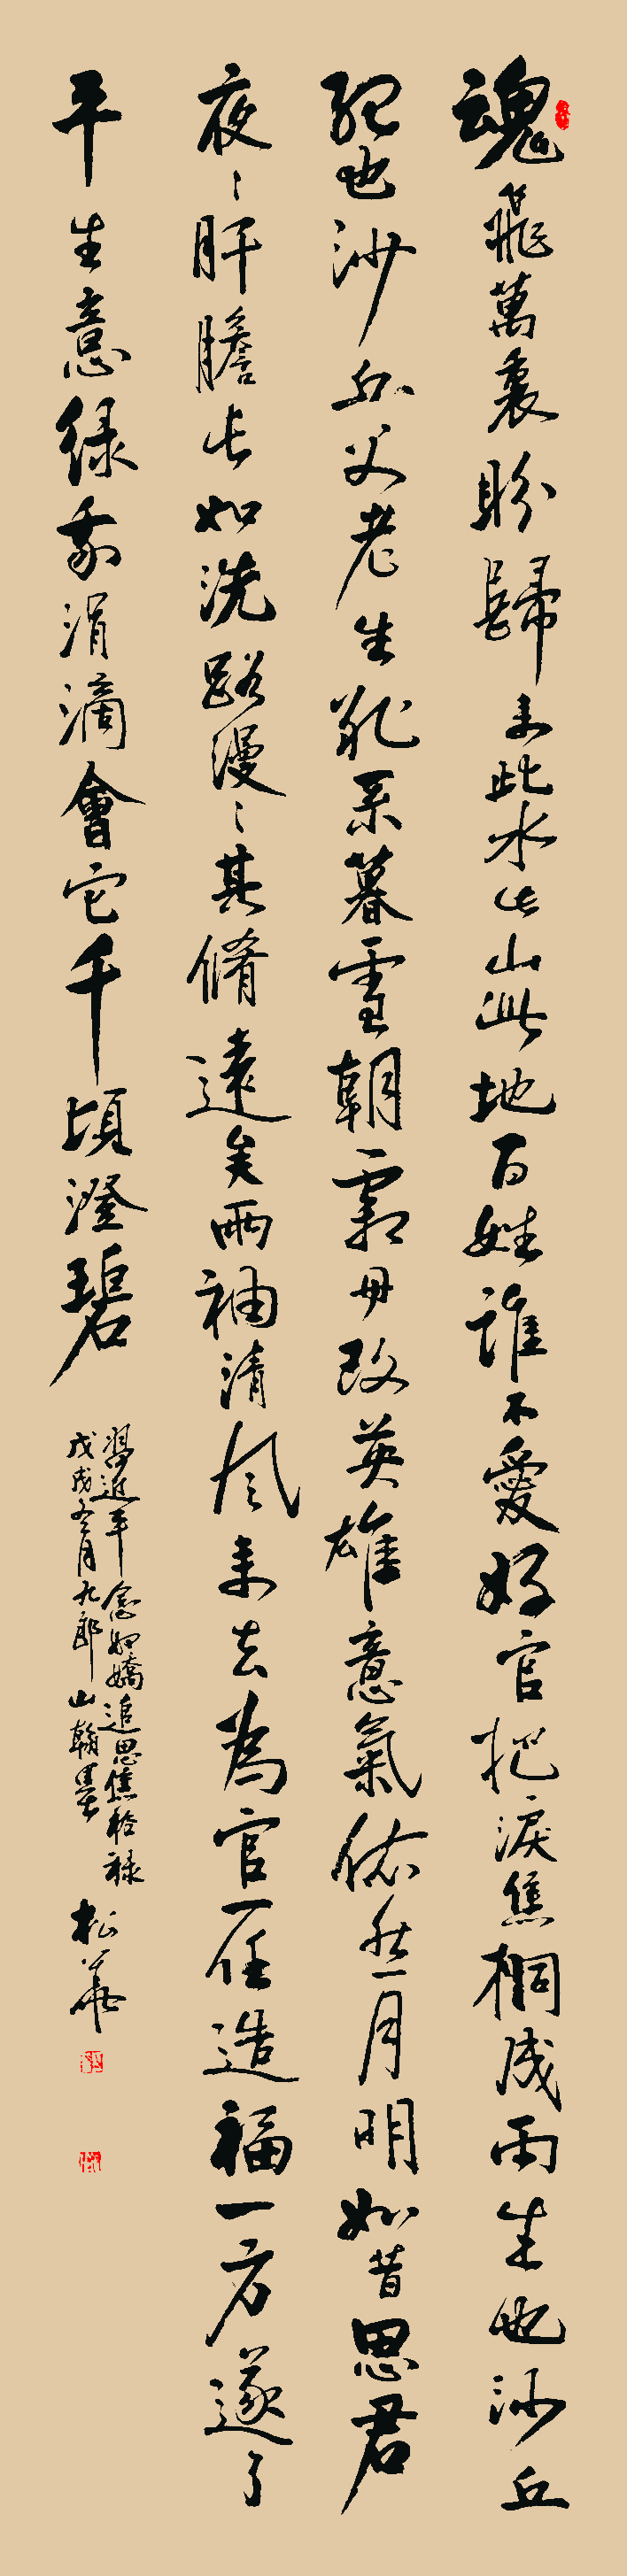 魂飛萬裏盼歸来此水此山此地百姓誰不愛好官把淚焦桐成雨生也沙丘
死也沙丘父老生死系暮雪朝霜毋改英雄意氣依然月明如昔思君
夜〻肝膽长如洗路漫〻其脩遠矣兩袖清風来去為官一任造福一方遂了
平生意緑我涓滴會它千頃澄碧
習近平念奴嬌追思焦裕禄
戊戌冬月九郎山翰墨
松華